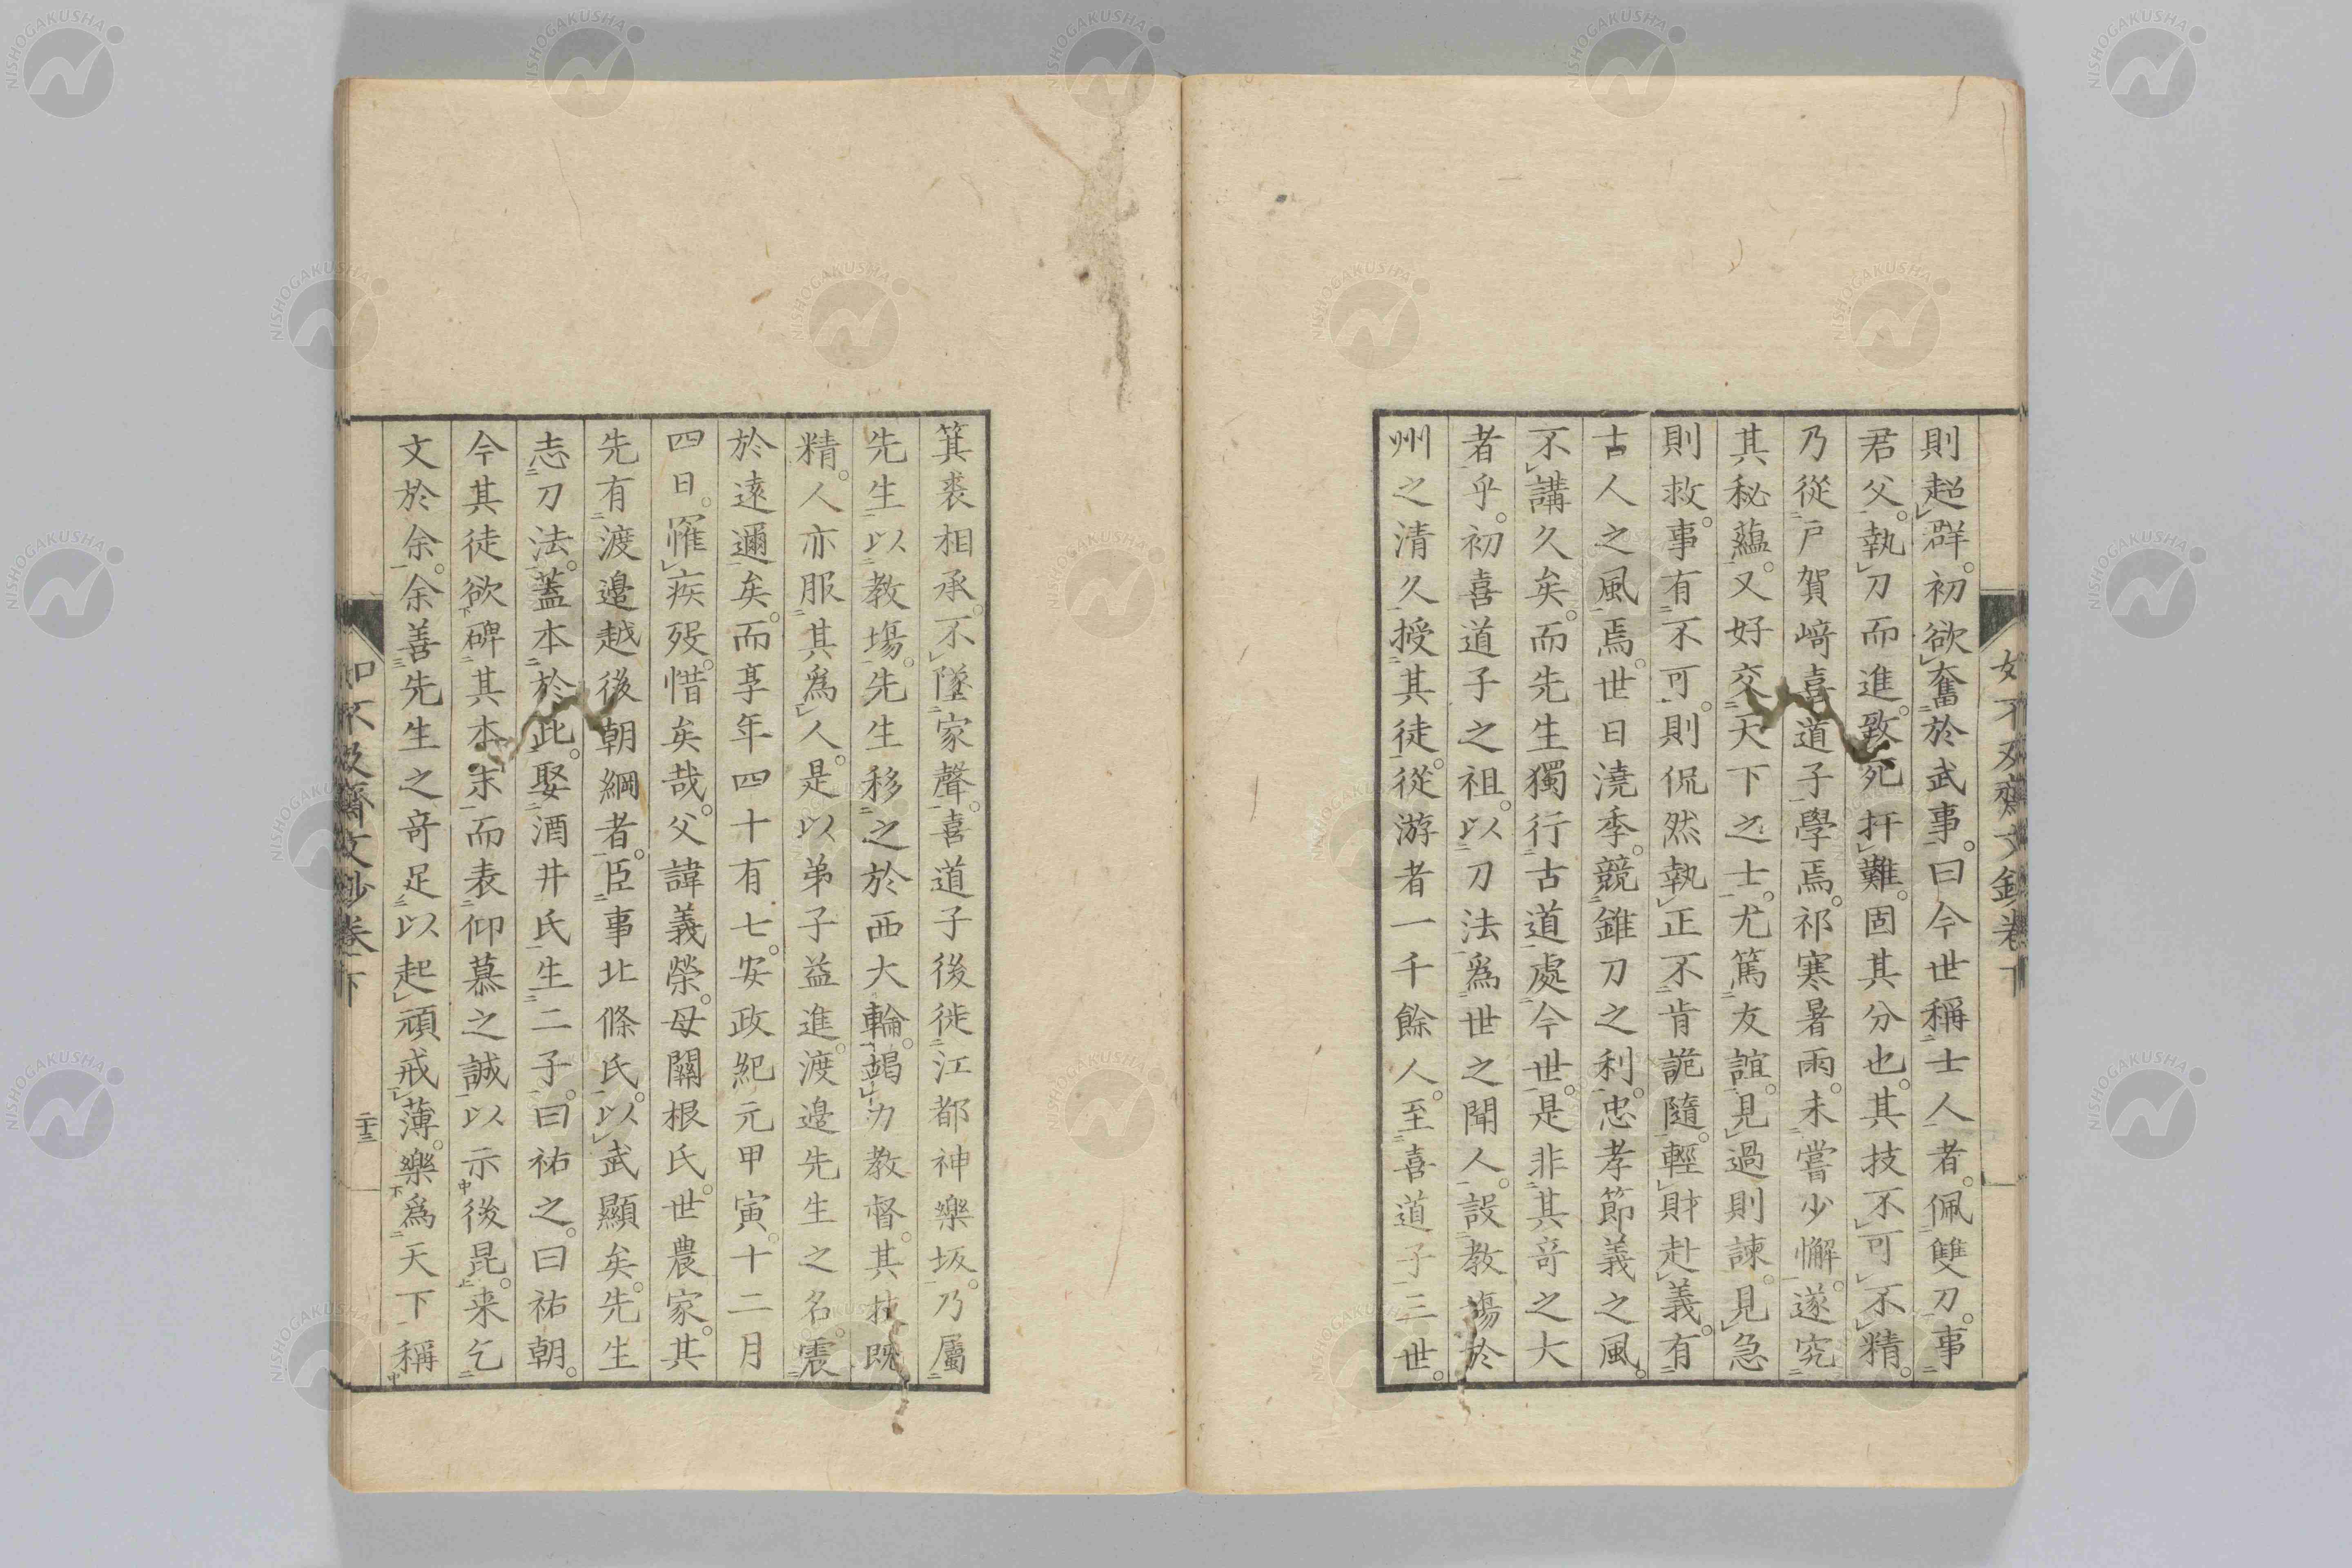 則超群。初欲奮於武事。曰今世稱士人者。佩雙刀。事
君父。執刀而進。致死扞難。固其分也。其技不可不精。
乃從戸賀﨑喜道子學焉。祁寒暑雨。未嘗少懈。遂究
其秘蘊。又好交天下之士。尤篤友誼。見過則諫。見急
則救。事有不可。則侃然執正不肯詭隨。輕財赴義。有
古人之風焉。世日澆季。競錐刀之利。忠孝節義之風。
不講久矣。而先生獨行古道處今世。是非其竒之大
者乎。初喜道子之祖。以刀法爲世之聞人。設教塲於
州之清久授其徒。從游者一千餘人。至喜道子三世。
箕裘相承。不墜家聲。喜道子後徙江都神樂坂。乃屬
先生以教塲。先生移之於西大輪。竭力教督。其技既
精。人亦服其爲人。是以弟子益進。渡邉先生之名。震
於遠邇矣。而享年四十有七。安政紀元甲寅。十二月
四日。罹疾歿。惜矣哉。父諱義榮。母關根氏。世農家。其
先有渡邉越後朝綱者。臣事北條氏。以武顯矣。先生
志刀法。蓋本於此。娶酒井氏生二子。曰祐之。曰祐朝。
今其徒欲碑其本末而表仰慕之誠以示後昆。来乞
文於余。余善先生之竒足以起頑戒薄。樂爲天下稱
如不及齋文鈔卷下
二十三
NISHOGAKUSHA